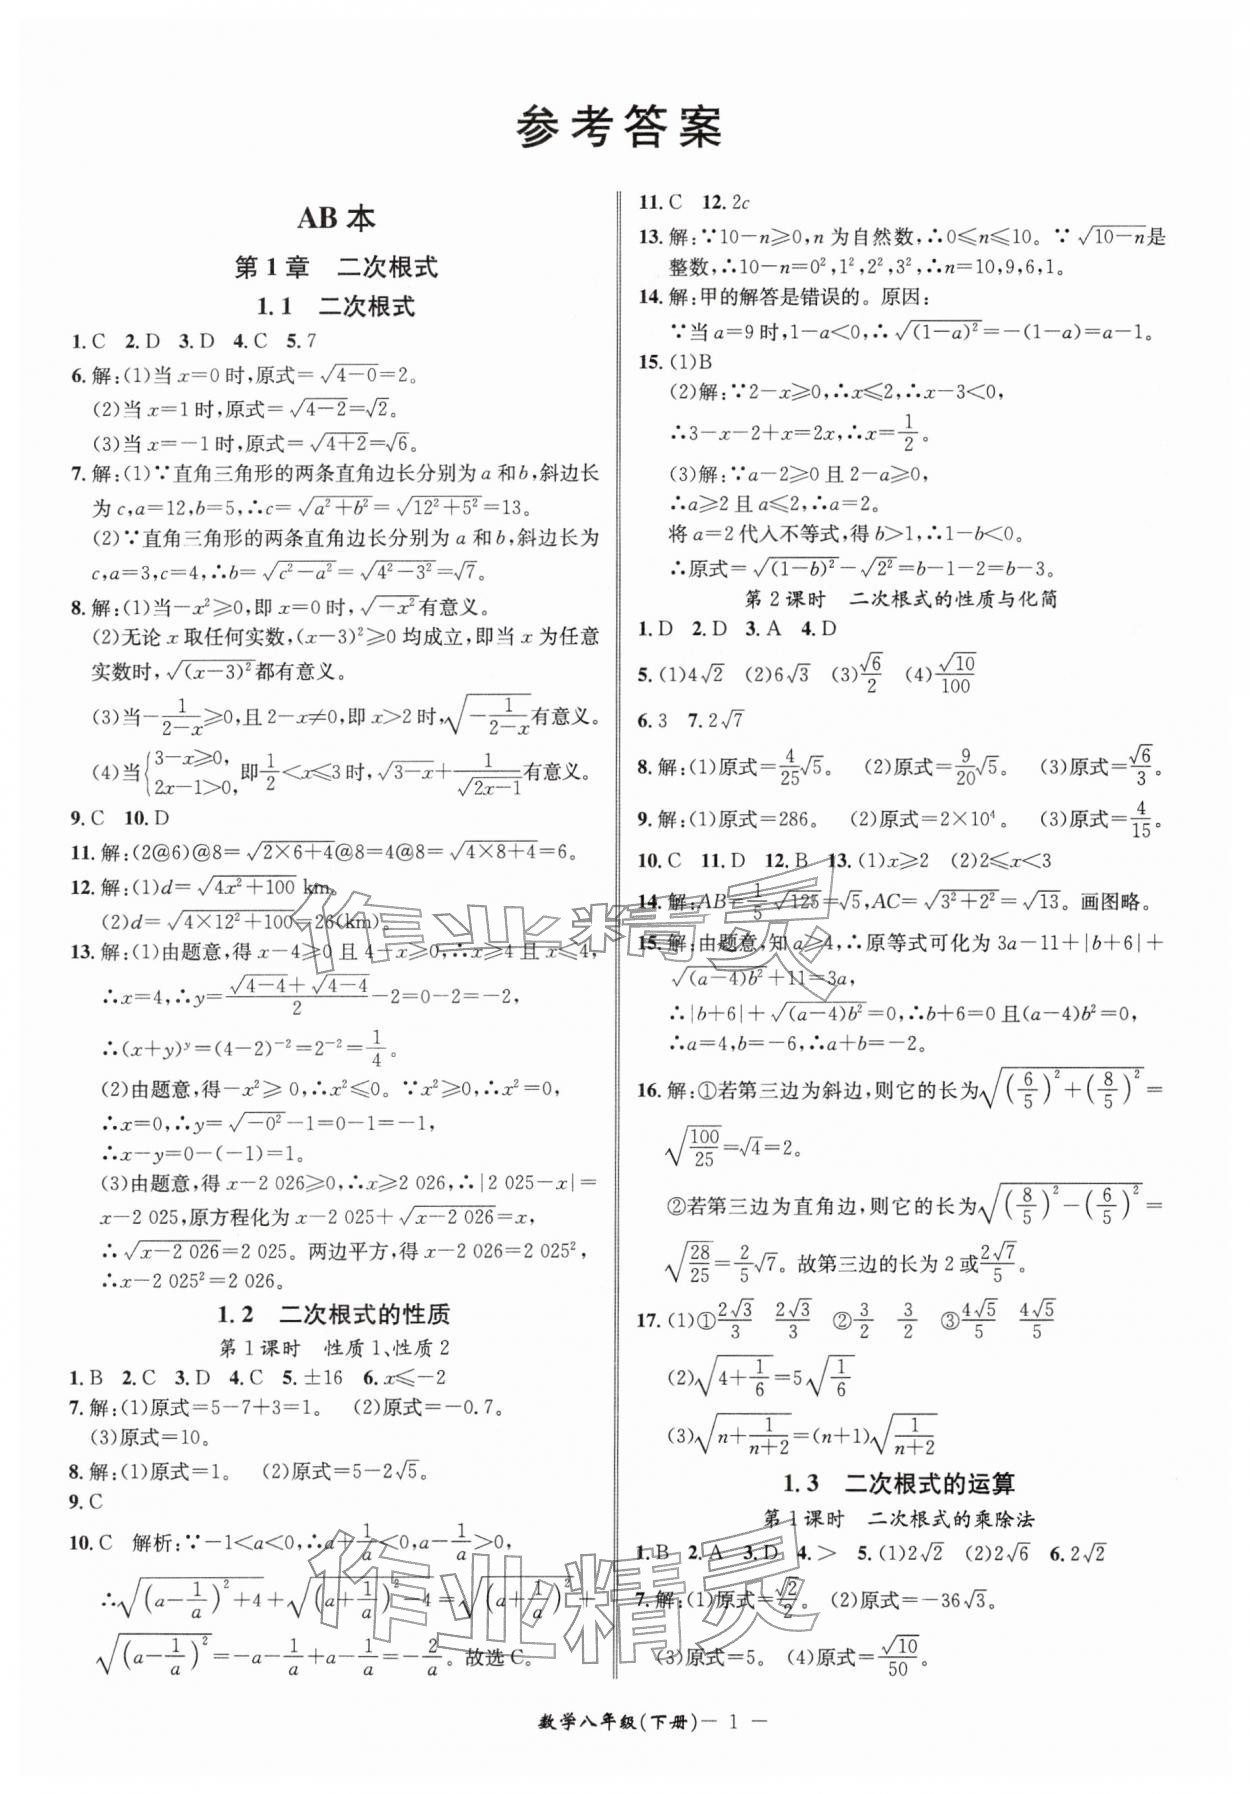 参考答案
AB本
第1章　二次根式
1.1　二次根式
1.C　2.D　3.D　4.C　5.7
6.解:(1)当x=0时,原式=√(4-0)=2。
(2)当x=1时,原式=√(4-2)=√2。
(3)当x=-1时,原式=√(4+2)=√6。
7.解:(1)∵直角三角形的两条直角边长分别为a和b,斜边长
为c,a=12,b=5,∴c=√(a²+b²)=√(12²+5²)=13。
(2)∵直角三角形的两条直角边长分别为a和b,斜边长为
c,a=3,c=4,∴b=√(c²-a²)=√(4²-3²)=√7。
8.解:(1)当-x²≥0,即x=0时,√(-x²)有意义。
(2)无论x取任何实数,(x-3)²≥0均成立,即当x为任意
实数时,√((x-3)²)都有意义。
(3)当-1/(2-x)≥0,且2-x≠0,即x>2时,√(-1/(2-x))有意义。
(4)当{3-x≥0, 2x-1>0,即1/2<x≤3时,√(3-x)+1/√(2x-1)有意义。
9.C　10.D
11.解:(2@6)@8=√(2×6+4)@8=4@8=√(4×8+4)=6。
12.解:(1)d=√(4x²+100) km。
(2)d=√(4×12²+100)=26(km)。
13.解:(1)由题意,得x-4≥0且4-x≥0,∴x≥4且x≤4,
∴x=4,∴y=(√(4-4)+√(4-4))/2-2=0-2=-2,
∴(x+y)^y=(4-2)⁻²=2⁻²=1/4。
(2)由题意,得-x²≥0,∴x²≤0。∵x²≥0,∴x²=0,
∴x=0,∴y=√(-0²)-1=0-1=-1,
∴x-y=0-(-1)=1。
(3)由题意,得x-2 026≥0,∴x≥2 026,∴|2 025-x|=
x-2 025,原方程化为x-2 025+√(x-2 026)=x,
∴√(x-2 026)=2 025。两边平方,得x-2 026=2 025²,
∴x-2 025²=2 026。
1.2　二次根式的性质
第1课时　性质1、性质2
1.B　2.C　3.D　4.C　5.±16　6.x≤-2
7.解:(1)原式=5-7+3=1。　(2)原式=-0.7。
(3)原式=10。
8.解:(1)原式=1。　(2)原式=5-2√5。
9.C
10.C　解析:∵-1<a<0,∴a+1/a<0,a-1/a>0,
∴√((a-1/a)²+4)+√((a+1/a)²-4)=√((a+1/a)²)+
√((a-1/a)²)=-a-1/a+a-1/a=-2/a。故选C。
11.C　12.2c
13.解:∵10-n≥0,n为自然数,∴0≤n≤10。∵√(10-n)是
整数,∴10-n=0²,1²,2²,3²,∴n=10,9,6,1。
14.解:甲的解答是错误的。原因:
∵当a=9时,1-a<0,∴√((1-a)²)=-(1-a)=a-1。
15.(1)B
(2)解:∵2-x≥0,∴x≤2,∴x-3<0,
∴3-x-2+x=2x,∴x=1/2。
(3)解:∵a-2≥0且2-a≥0,
∴a≥2且a≤2,∴a=2。
将a=2代入不等式,得b>1,∴1-b<0。
∴原式=√((1-b)²)-√(2²)=b-1-2=b-3。
第2课时　二次根式的性质与化简
1.D　2.D　3.A　4.D
5.(1)4√2　(2)6√3　(3)√6/2　(4)√10/100
6.3　7.2√7
8.解:(1)原式=4/25√5。　(2)原式=9/20√5。　(3)原式=√6/3。
9.解:(1)原式=286。　(2)原式=2×10⁴。　(3)原式=4/15。
10.C　11.D　12.B　13.(1)x≥2　(2)2≤x<3
14.解:AB=1/5√125=√5,AC=√(3²+2²)=√13。画图略。
15.解:由题意,知a≥4,∴原等式可化为3a-11+|b+6|+
√((a-4)b²)+11=3a,
∴|b+6|+√((a-4)b²)=0,∴b+6=0且(a-4)b²=0,
∴a=4,b=-6,∴a+b=-2。
16.解:①若第三边为斜边,则它的长为√((6/5)²+(8/5)²)=
√(100/25)=√4=2。
②若第三边为直角边,则它的长为√((8/5)²-(6/5)²)=
√(28/25)=2/5√7。故第三边的长为2或2√7/5。
17.(1)①2√3/3　2√3/3　②3/2　3/2　③4√5/5　4√5/5
(2)√(4+1/6)=5√(1/6)
(3)√(n+1/(n+2))=(n+1)√(1/(n+2))
1.3　二次根式的运算
第1课时　二次根式的乘除法
1.B　2.A　3.D　4.>　5.(1)2√2　(2)2√6　6.2√2
7.解:(1)原式=√2/2。　(2)原式=-36√3。
(3)原式=5。　(4)原式=√10/50。
数学八年级(下册)— 1 —
作业精灵
作业精灵